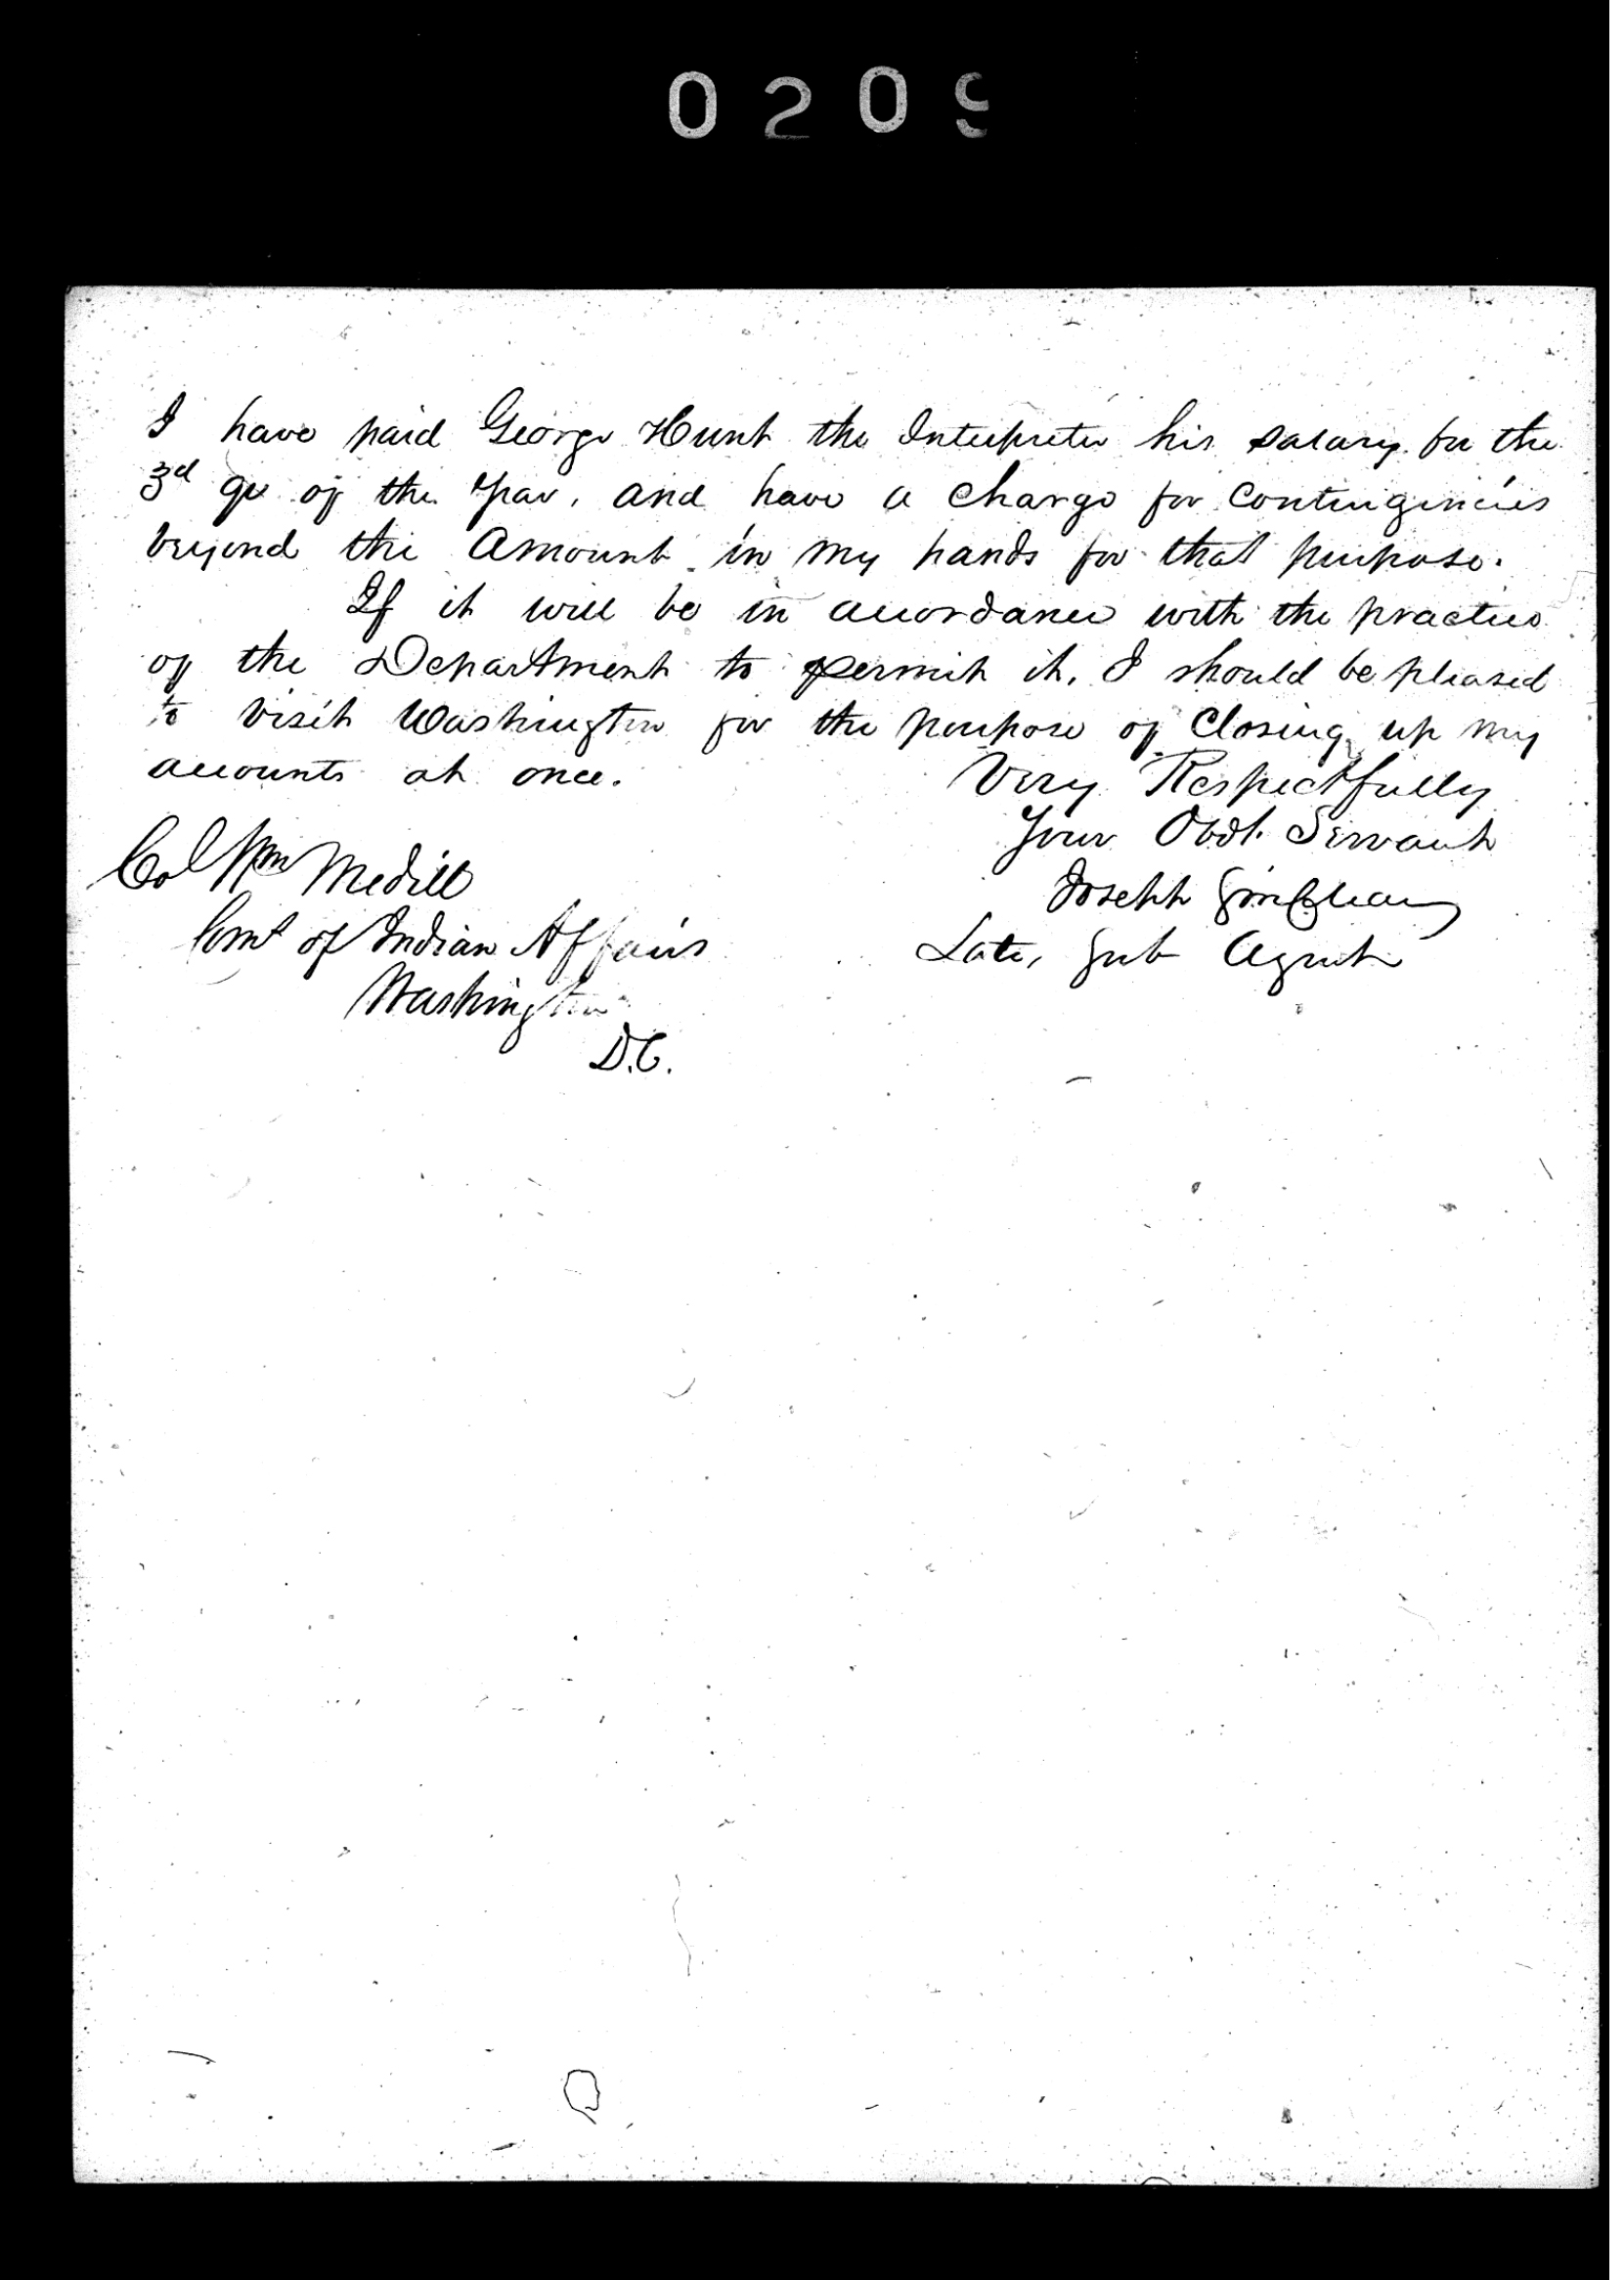 0209
I have paid George Hunt the Interpreter his salary for the
3d qr of the year, and have a charge for contingencies
beyond the Amount in my hands for that purpose.
If it will be in accordance with the practice
of the Department to permit it, I should be pleased
to visit Washington for the purpose of Closing up my
accounts at once.
Very Respectfully
Your Obdt. Servant
Col Wm Medill
Joseph Sinclear
Comr of Indian Affairs
Late, Sub Agent
Washington
D.C.